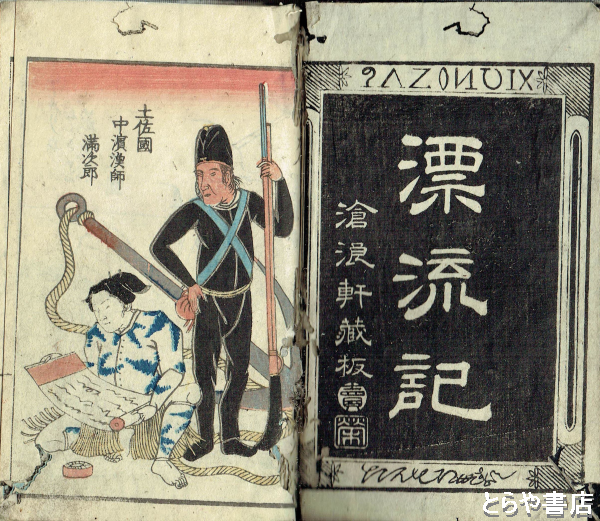 漂流記
滄浪軒藏板
土佐國
中濵漁師
満次郎
とらや書店